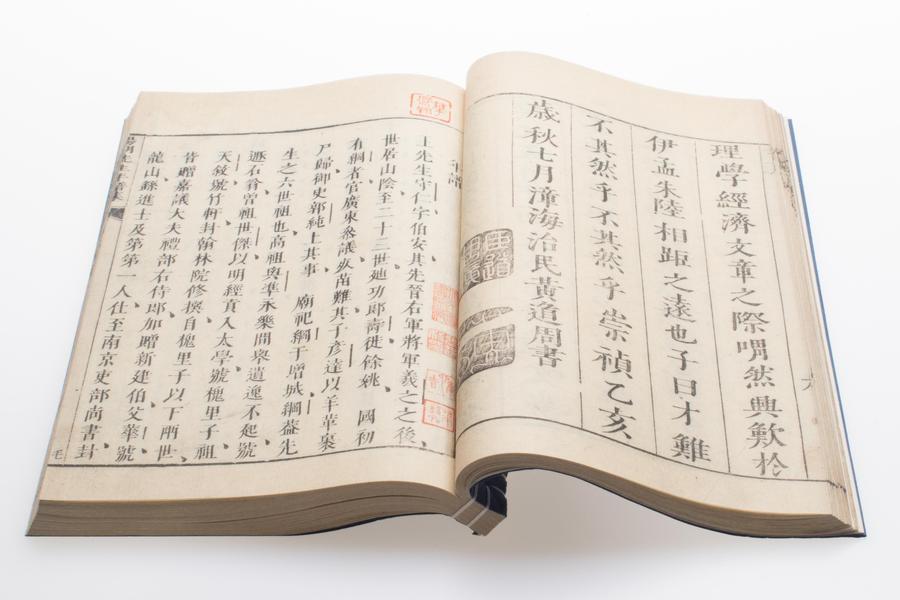 理學經濟文章之際喟然興歎於
伊孟朱陸相距之遠也子曰才難
不其然乎不其然乎崇禎乙亥
歲秋七月漳海治民黃道周書
上先生守仁字伯安其先晉右軍將軍羲之之後
世居山陰至二十三世迪功郎壽徙餘姚 國初
有綱者官廣東叅議歿苗難其子彥達以羊革裹
尸歸御史郭純上其事 廟祀綱于增城綱葢先
生之六世祖也高祖與準永樂間舉遺逸不起號
遯石翁曾祖世傑以明經貢入太學號槐里子祖
天敘號竹軒封翰林院修撰自槐里子以下兩世
皆贈嘉議大夫禮部右侍郎加贈新建伯父華號
龍山繇進士及第第一人仕至南京吏部尚書封